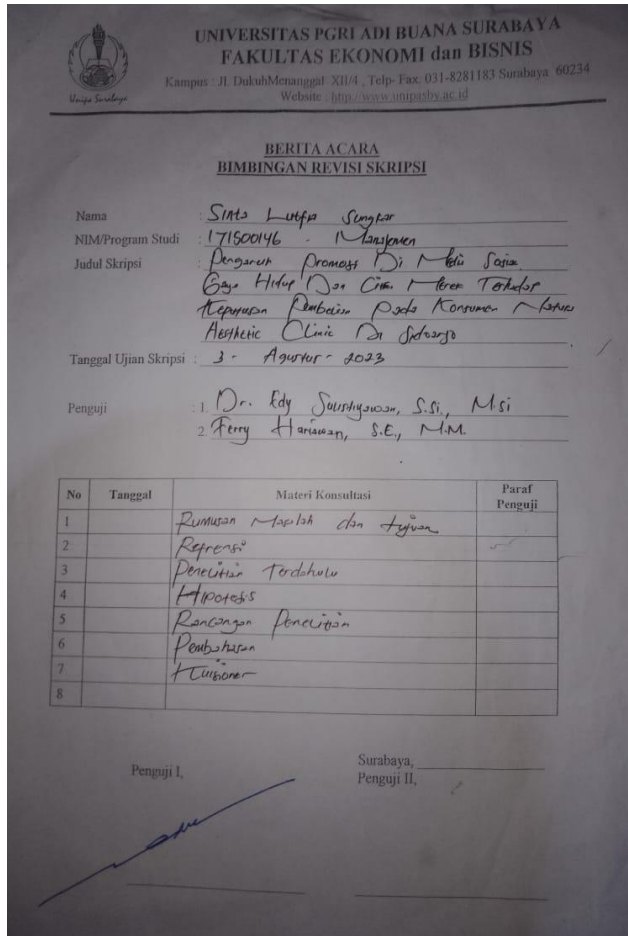 UNIVERSITAS PGRI ADI BUANA SURABAYA
FAKULTAS EKONOMI dan BISNIS
Kampus : Jl. DukuhMenanggal XII/4 , Telp- Fax. 031-8281183 Surabaya 60234
Website : http://www.unipasby.ac.id
Unipa Surabaya
BERITA ACARA
BIMBINGAN REVISI SKRIPSI
Nama : Sinta Lutfia Sungkar
NIM/Program Studi : 171500146 - Manajemen
Judul Skripsi : Pengaruh Promosi Di Media Sosial
Gaya Hidup Dan Citra Merek Terhadap
Keputusan Pembelian Pada Konsumen
Aesthetic Clinic Di Sidoarjo
Tanggal Ujian Skripsi : 3 - Agustus - 2023
Penguji : 1. Dr. Edy Sulistiyawan, S.Si., M.Si
2. Ferry Hariawan, S.E., M.M.
No Tanggal Materi Konsultasi Paraf Penguji
1 Rumusan Masalah dan tujuan
2 Refrensi
3 Penelitian Terdahulu
4 Hipotesis
5 Rancangan Penelitian
6 Pembahasan
7 Kuisioner
8
Surabaya,
Penguji I, Penguji II,